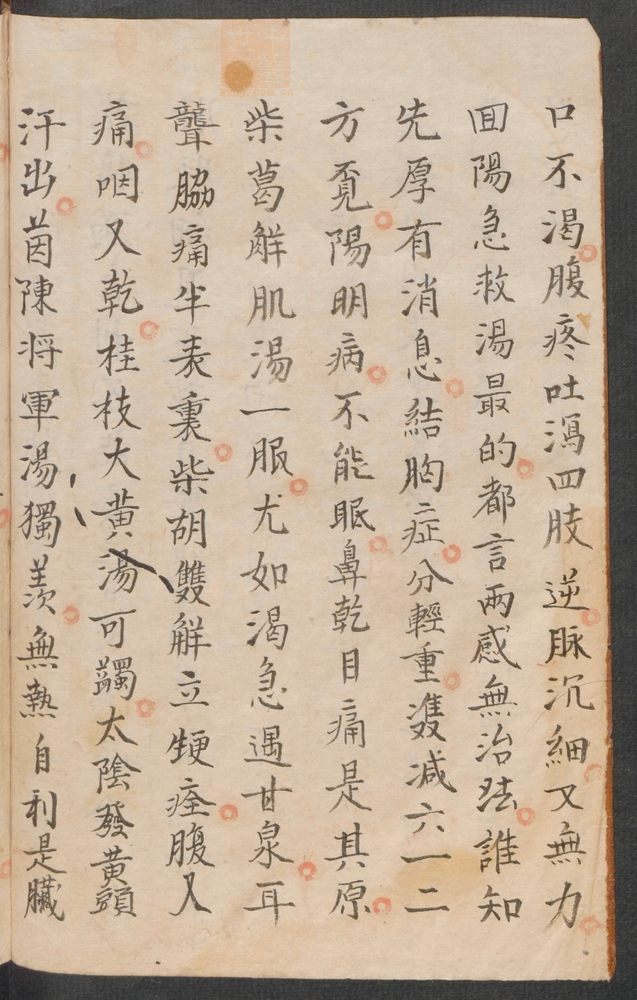 口不渴腹疼吐瀉四肢逆脉沉細又無力
回陽急救湯最的都言两感無治法誰知
先厚有消息結胸二症分輕重雙减六一二
方覓陽明病不能眠鼻乾目痛是其原
柴葛解肌湯一服尤如渴急遇甘泉耳
聾脇痛半表裏柴胡雙解立便痊腹又
痛咽又乾桂枝大黄湯可蠲太陰發黄頭
汗出茵陳将軍湯獨羡無熱自利是臟